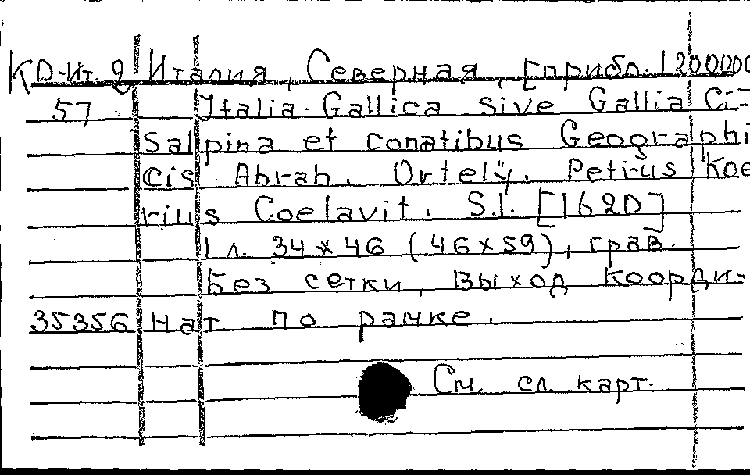 КО-Ит. 2 Италия, Северная, [прибл. 1200000
57 Italia Gallica sive Gallia Ci-
salpina et conatibus Geographi
cis Abrah. Ortely. Petrus Koe
rius Coelavit. S.l. [1620]
1 л. 34 x 46 (46 x 59), грав.
Без сетки, выход коорди-
35356 нат по рамке.
См. сл. карт.